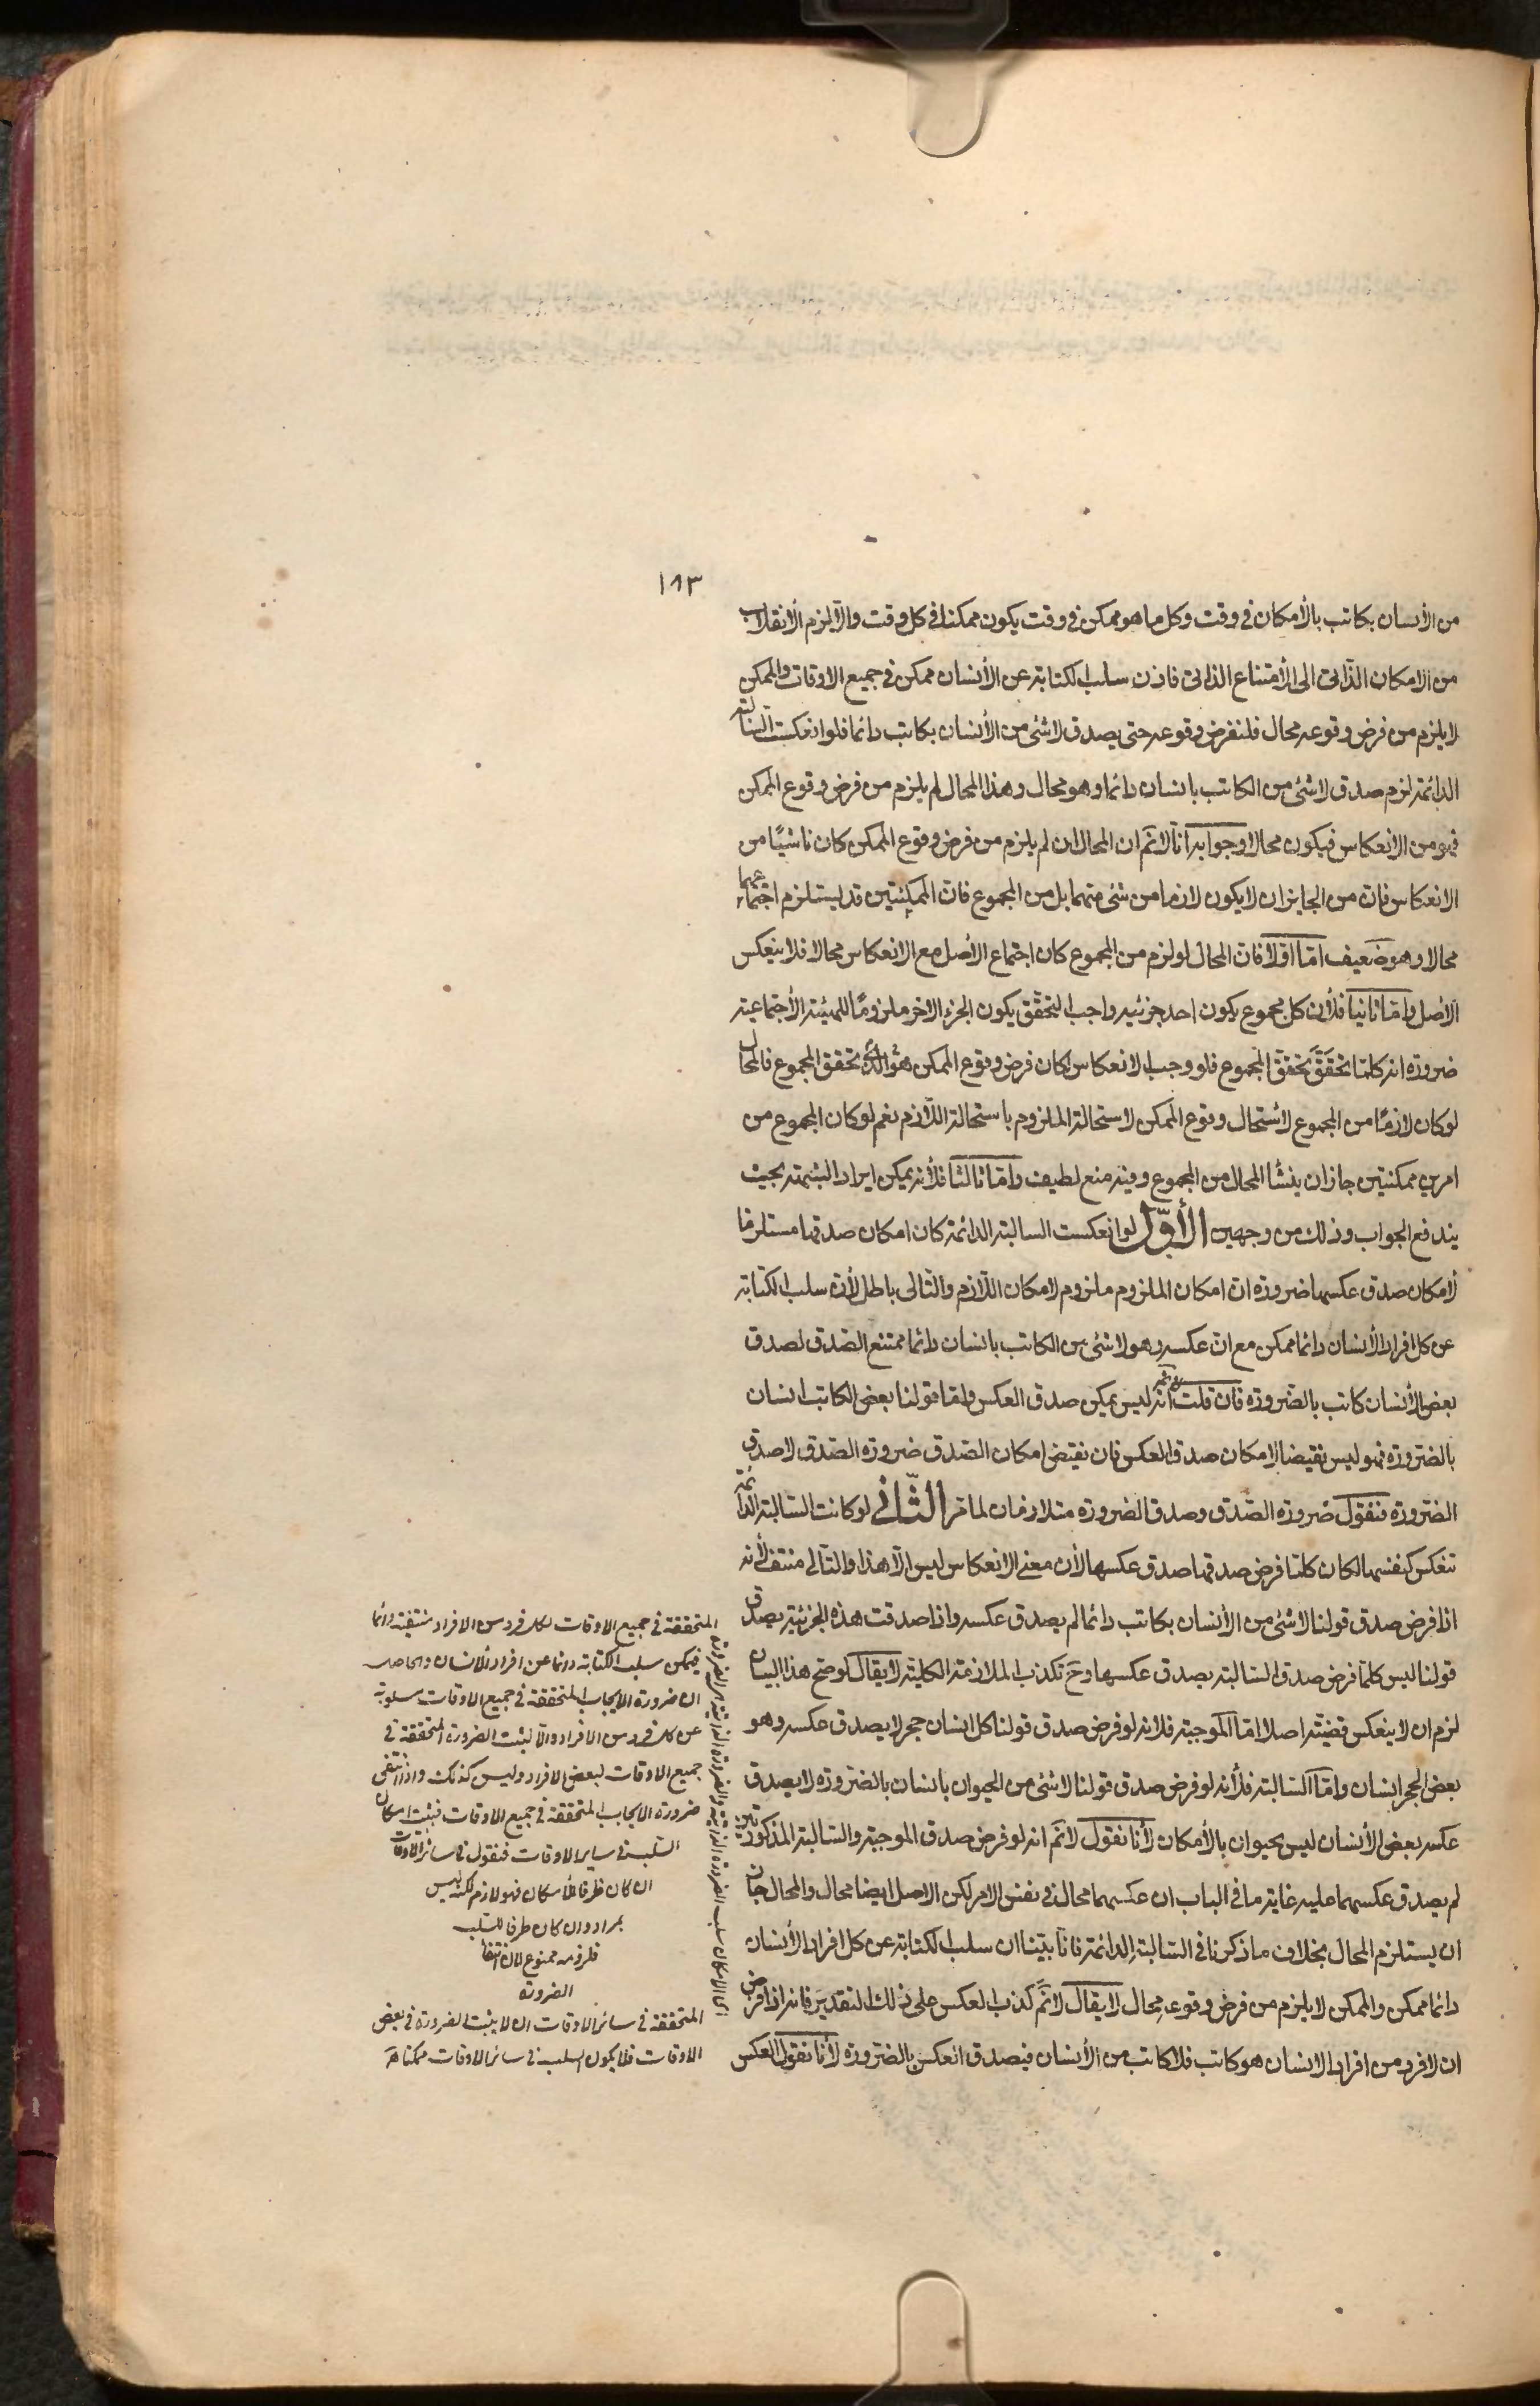 ١٨٣
من الأنسان بكاتب بالأمكان فى وقت وكل ما هو ممكن فى وقت يكون ممكنا فى كل وقت والّا لزم الأنقلاب
من الامكان الذّاتى الى الأمتناع الذاتى فاذن سلب الكتابة عن الأنسان ممكن فى جميع الاوقات والممكن
لا يلزم من فرض وقوعه محال فلنفرض وقوعه حتى يصدق لا شئ من الأنسان بكاتب دائما فلو انعكست السالبة
الدائمة لزم صدق لا شئ من الكاتب بانسان دائما وهو محال وهذا المحال لم يلزم من فرض وقوع الممكن
فهو من الانعكاس فيكون محالا وجوابه انّا لا نثم ان المحال ان لم يلزم من فرض وقوع الممكن كان ناشيًا من
الانعكاس فان من الجايز ان لا يكون لازما من شئ منهما بل من المجموع فان الممكنتين قد يستلزم اجتماعهما
محالا وهو ضعيف امّا اوّلا فان المحال لو لزم من المجموع كان اجتماع الأصل مع الانعكاس محالا فلا ينعكس
الأصل وامّا ثانيا فلأن كل مجموع يكون احد جزئيه واجب التحقّق يكون الجزء الاخر ملزومًا للهيئة الأجتماعية
ضرورة انه كلما تحقّق تحقّق المجموع فلو وجب الانعكاس لكان فرض وقوع الممكن هو تحقق المجموع فالمحال
لو كان لازمًا من المجموع لأستحال وقوع الممكن لاستحالة الملزوم باستحالة اللّازم نعم لو كان المجموع من
امرين ممكنتين جاز ان ينشأ المحال من المجموع وفيه منع لطيف وامّا ثالثا فلأنه يمكن ايراد الشبهة بحيث
يندفع الجواب وذلك من وجهين الأوّل لو انعكست السالبة الدائمة كان امكان صدقها مستلزما
لأمكان صدق عكسها ضرورة ان امكان الملزوم ملزوم لامكان اللّازم والتّالى باطل لأن سلب الكتابة
عن كل افراد الأنسان دائما ممكن مع ان عكسه وهو لا شئ من الكاتب بانسان دائما ممتنع الصّدق لصدق
بعض الأنسان كاتب بالضّرورة فان قلت انه ليس يمكن صدق العكس وامّا قولنا بعض الكاتب انسان
بالضرورة فهو ليس نقيضا لامكان صدق العكس فان نقيض امكان الصّدق ضرورة الصّدق لا صدق
الضرورة فنقول ضرورة الصّدق وصدق الضرورة متلازمان لما مر الثّانى لو كانت السّالبة الدائمة
تنعكس كنفسها لكان كلما فرض صدقها صدق عكسها لأن معنى الانعكاس ليس الّا هذا والتّالى منتف لأنه
اذا فرض صدق قولنا لا شئ من الأنسان بكاتب دائما لم يصدق عكسه واذا صدقت هذه الجزئية يصدق
قولنا ليس كلما فرض صدق السّالبة يصدق عكسها وح تكذب الملازمة الكلية لا يقال لو صح هذا البيان
لزم ان لا ينعكس قضيّة اصلا امّا الموجبة فلانه لو فرض صدق قولنا كل انسان حجر لا يصدق عكسه وهو
بعض الحجر انسان وامّا السّالبة فلأنه لو فرض صدق قولنا لا شئ من الحيوان بانسان بالضرورة لا يصدق
عكسه بعض الأنسان ليس بحيوان بالأمكان لأنّا نقول لا نثم انه لو فرض صدق الموجبة والسّالبة المذكورتين
لم يصدق عكسهما عليه غاية ما فى الباب ان عكسهما محال فى نفس الامر لكن الاصل ايضا محال والمحال جاز
ان يستلزم المحال بخلاف ما ذكرنا فى السّالبة الدائمة فانّا بيّنا ان سلب الكتابة عن كل افراد الأنسان
دائما ممكن والممكن لا يلزم من فرض وقوعه محال لا يقال لا نثم كذب العكس على ذلك التقدير فانه اذا فرض
ان لا فرد من افراد الانسان هو كاتب فلا كاتب من الأنسان فيصدق العكس بالضرورة لأنّا نقول العكس
المتحققة فى جميع الاوقات لكل فرد من الافراد منتفية دائما
فيمكن سلب الكتابة دائما عن افراد الأنسان والحاصل
ان ضرورة الايجاب المتحققة فى جميع الاوقات مسلوبة
عن كل فرد من الافراد والّا لثبت الضرورة المتحققة فى
جميع الاوقات لبعض الافراد وليس كذلك واذا انتفى
ضرورة الايجاب المتحققة فى جميع الاوقات فيثبت امكان
السّلب فى ساير الاوقات فنقول فى سائر الاوقات
ان كان ظرفا للأمكان فهو لازم لكنه ليس
بمراد وان كان ظرفا للسّلب
فلزومه ممنوع لان انتفا
الضرورة
المتحققة فى سائر الاوقات ان لا يثبت الضرورة فى بعض
الاوقات فلا يكون السلب فى سائر الاوقات ممكنا